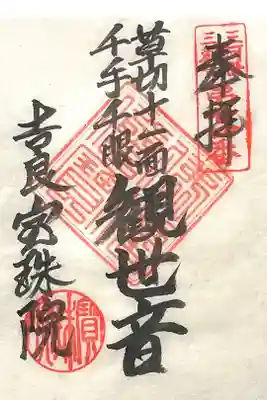 奉拝
草切十一面
千手千眼
観世音
吉良宝珠院